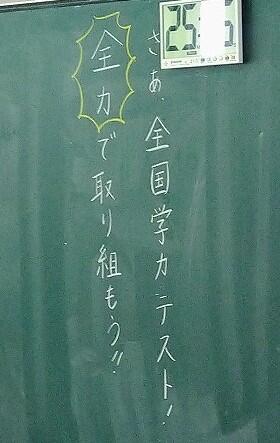 さあ、全国学力テスト!
全力で取り組もう!!